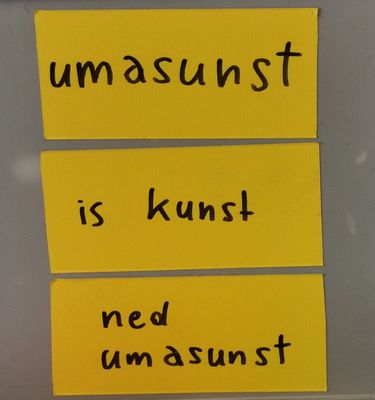 umasunst
is kunst
ned
umasunst